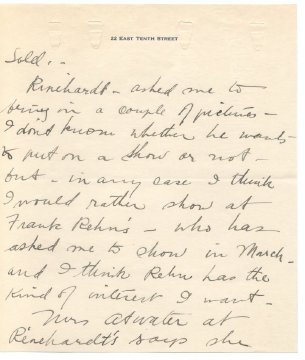 22 EAST TENTH STREET
Sold. -
Rinehardt - asked me to
bring in a couple of pictures -
I don't know whether he wants
to put on a Show or not -
but - in any case I think
I would rather show at
Frank Rehn's - who has
asked me to show in March -
and I think Rehn has the
kind of interest I want -
Mrs Atwater at
Rinehardt's says she